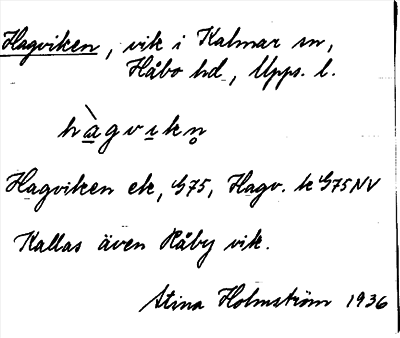 Hagviken, vik i Kalmar sn,
Håbo hd, Upps. l.
hàgvikn̥
Hagviken ek, G75, Hagv. k G75NV
Kallas även Råby vik.
Stina Holmström 1936